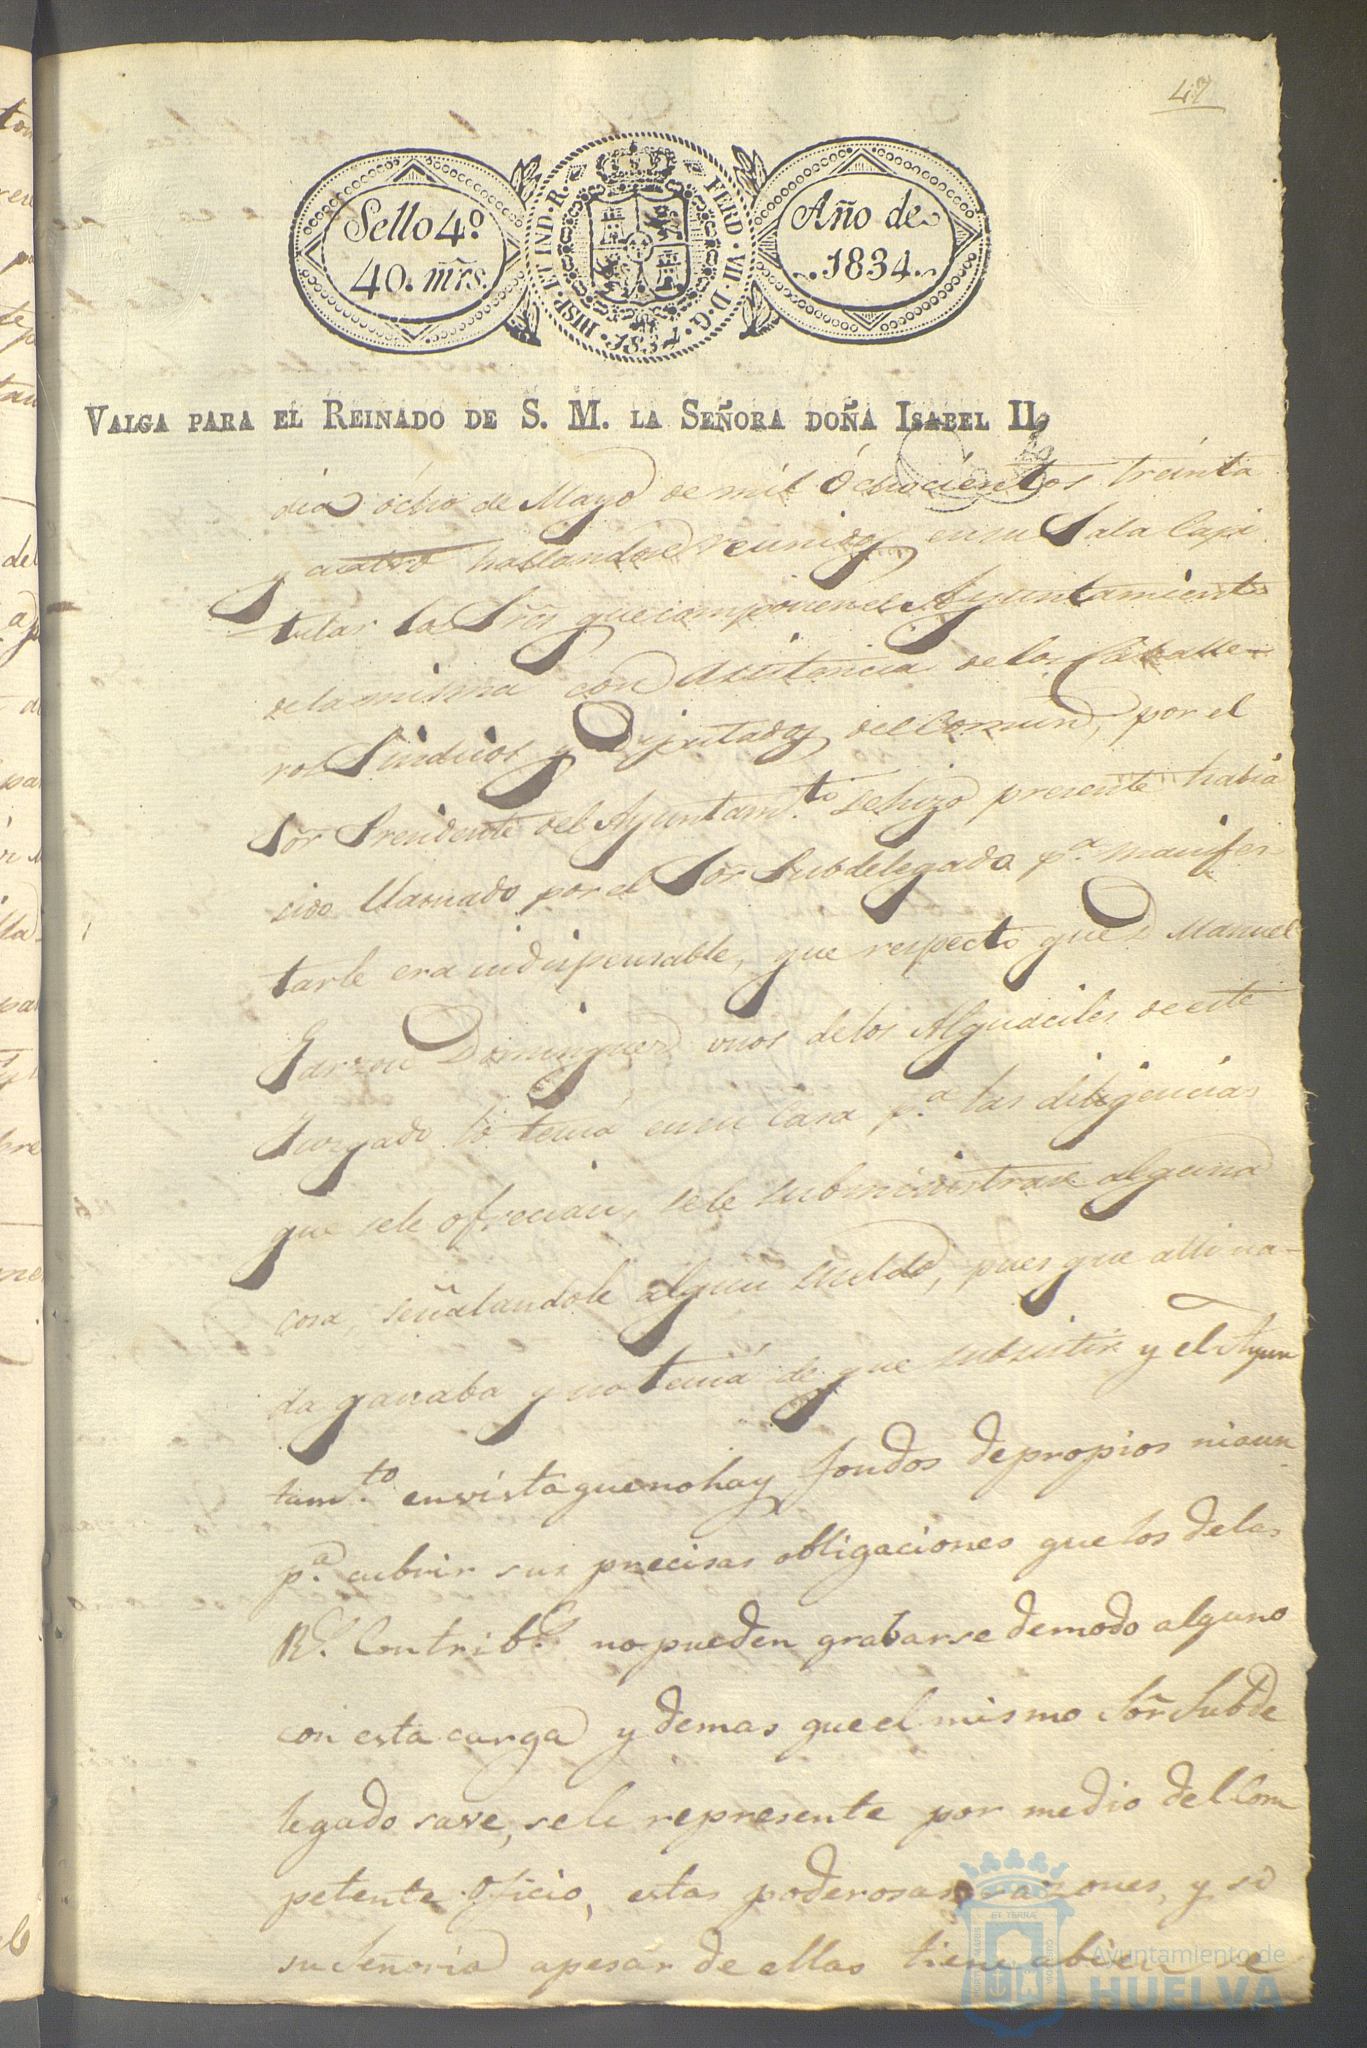 47
Sello 4º
40. mrs.
HISP. ET IND. R. FERD. VII. D. G. 1834
Año de
1834
VALGA PARA EL REINADO DE S. M. LA SEÑORA DOÑA ISABEL II.
dia ócho de Mayo de mil óchocientos treinta
y cuatro hallandose reunidos en su Sala Capi
tular los Sres que componen el Ayuntamiento
de la misma con asistencia de los Caballe
ros Sindicos y Diputados del Comun, por el
Sor Presidente del Ayuntamto se hizo presente habia
sido llamado por el Sor Subdelegado pa manifes
tarle era indispensable, que respecto que D Manuel
Garzon Dominguez unos de los Alguaciles de este
Juzgado lo tenia en su Casa pa las diligencias
que sele ofrecian, sele subministrase alguna
cosa, señalandole algun sueldo, pues que alli na-
da ganaba y no tenia de que subsistir y el Ayun
tamto en vista que no hay fondos de propios ni aun
pa cubrir sus precisas obligaciones que los de las
Rs Contribs no pueden grabarse de modo alguno
con esta carga y demas que el mismo Sor Subde
legado save, sele represente por medio del Com
petente Oficio, estas poderosas razones, y si
su Señoria apesar de ellas tiene abien se
Ayuntamiento de
HUELVA